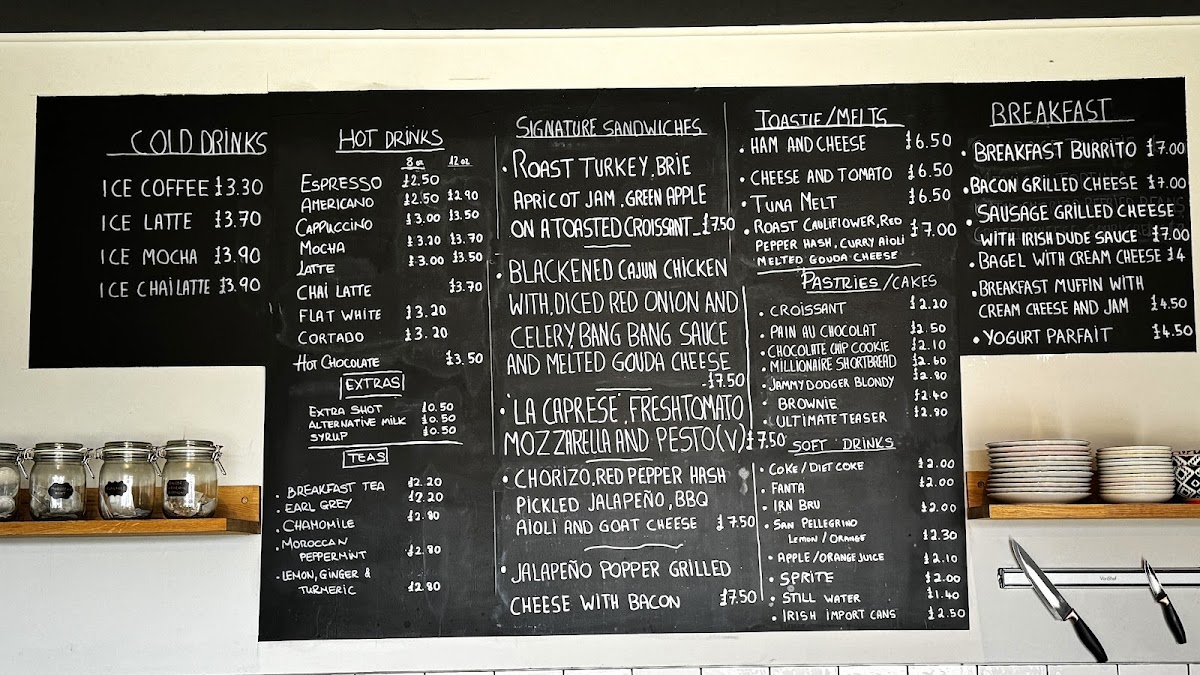 COLD DRINKS
ICE COFFEE £3.30
ICE LATTE £3.70
ICE MOCHA £3.90
ICE CHAI LATTE £3.90
HOT DRINKS
8 oz 12 oz
ESPRESSO £2.50
AMERICANO £2.50 £2.90
CAPPUCCINO £3.00 £3.50
MOCHA £3.20 £3.70
LATTE £3.00 £3.50
CHAI LATTE £3.70
FLAT WHITE £3.20
CORTADO £3.20
HOT CHOCOLATE £3.50
EXTRAS
EXTRA SHOT £0.50
ALTERNATIVE MILK £0.50
SYRUP £0.50
TEAS
• BREAKFAST TEA £2.20
• EARL GREY £2.20
• CHAMOMILE £2.80
• MOROCCAN
PEPPERMINT £2.80
• LEMON, GINGER &
TURMERIC £2.80
SIGNATURE SANDWICHES
• ROAST TURKEY, BRIE
APRICOT JAM, GREEN APPLE
ON A TOASTED CROISSANT - £7.50
• BLACKENED CAJUN CHICKEN
WITH, DICED RED ONION AND
CELERY, BANG BANG SAUCE
AND MELTED GOUDA CHEESE
- £7.50
• 'LA CAPRESE', FRESH TOMATO
MOZZARELLA AND PESTO (V) £7.50
• CHORIZO, RED PEPPER HASH
PICKLED JALAPEÑO, BBQ
AIOLI AND GOAT CHEESE £7.50
• JALAPEÑO POPPER GRILLED
CHEESE WITH BACON £7.50
TOASTIE/MELTS
• HAM AND CHEESE £6.50
• CHEESE AND TOMATO £6.50
• TUNA MELT £6.50
• ROAST CAULIFLOWER, RED
PEPPER HASH, CURRY AIOLI £7.00
MELTED GOUDA CHEESE
PASTRIES/CAKES
• CROISSANT £2.20
• PAIN AU CHOCOLAT £2.50
• CHOCOLATE CHIP COOKIE £2.10
• MILLIONAIRE SHORTBREAD £2.60
• JAMMY DODGER BLONDY £2.80
BROWNIE £2.40
• ULTIMATE TEASER £2.80
SOFT DRINKS
• COKE / DIET COKE £2.00
• FANTA £2.00
• IRN BRU £2.00
• SAN PELLEGRINO
LEMON / ORANGE £2.30
• APPLE/ORANGE JUICE £2.10
• SPRITE £2.00
• STILL WATER £1.40
• IRISH IMPORT CANS £2.50
BREAKFAST
• BREAKFAST BURRITO £7.00
• BACON GRILLED CHEESE £7.00
• SAUSAGE GRILLED CHEESE
WITH IRISH DUDE SAUCE £7.00
• BAGEL WITH CREAM CHEESE £4
• BREAKFAST MUFFIN WITH
CREAM CHEESE AND JAM £4.50
• YOGURT PARFAIT £4.50